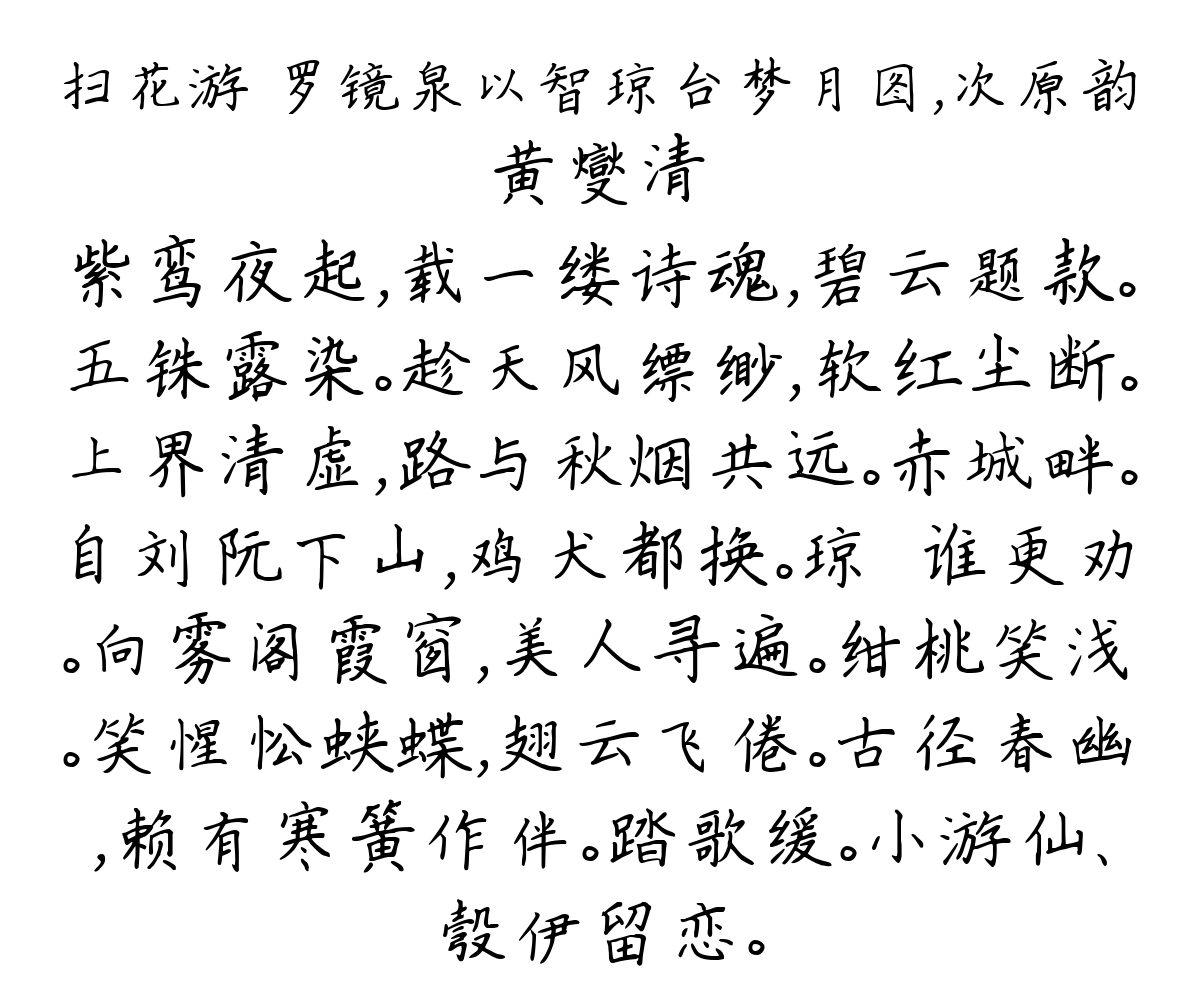 扫花游 罗镜泉以智琼台梦月图,次原韵
黄燮清
紫鸾夜起,载一缕诗魂,碧云题款。
五铢露染。趁天风缥缈,软红尘断。
上界清虚,路与秋烟共远。赤城畔。
自刘阮下山,鸡犬都换。琼 谁更劝
。向雾阁霞窗,美人寻遍。绀桃笑浅
。笑惺忪蛱蝶,翅云飞倦。古径春幽
,赖有寒簧作伴。踏歌缓。小游仙、
彀伊留恋。